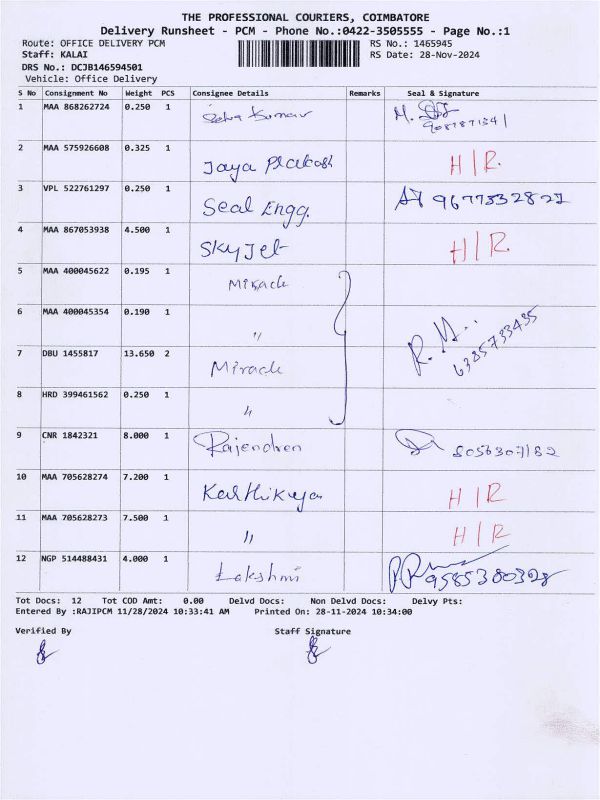 THE PROFESSIONAL COURIERS, COIMBATORE
Delivery Runsheet - PCM - Phone No.:0422-3505555 - Page No.:1
Route: OFFICE DELIVERY PCM RS No.: 1465945
Staff: KALAI RS Date: 28-Nov-2024
DRS No.: DCJB146594501
Vehicle: Office Delivery
S No Consignment No Weight PCS Consignee Details Remarks Seal & Signature
1 MAA 868262724 0.250 1 Kumar M.
2 MAA 575926608 0.325 1 Jaya Prakash H/R.
3 VPL 522761297 0.250 1 Seal Engg. 9677332827
4 MAA 867053938 4.500 1 SkyJet H/R.
5 MAA 400045622 0.195 1 Mirack
6 MAA 400045354 0.190 1 "
R. M... 6385733435
7 DBU 1455817 13.650 2 Mirack
8 HRD 399461562 0.250 1 "
9 CNR 1842321 8.000 1 Rajendren 8056307182
10 MAA 705628274 7.200 1 Karthikeya H/R
11 MAA 705628273 7.500 1 " H/R
12 NGP 514488431 4.000 1 Lakshmi 9585380328
Tot Docs: 12 Tot COD Amt: 0.00 Delvd Docs: Non Delvd Docs: Delvy Pts:
Entered By :RAJIPCM 11/28/2024 10:33:41 AM Printed On: 28-11-2024 10:34:00
Verified By Staff Signature